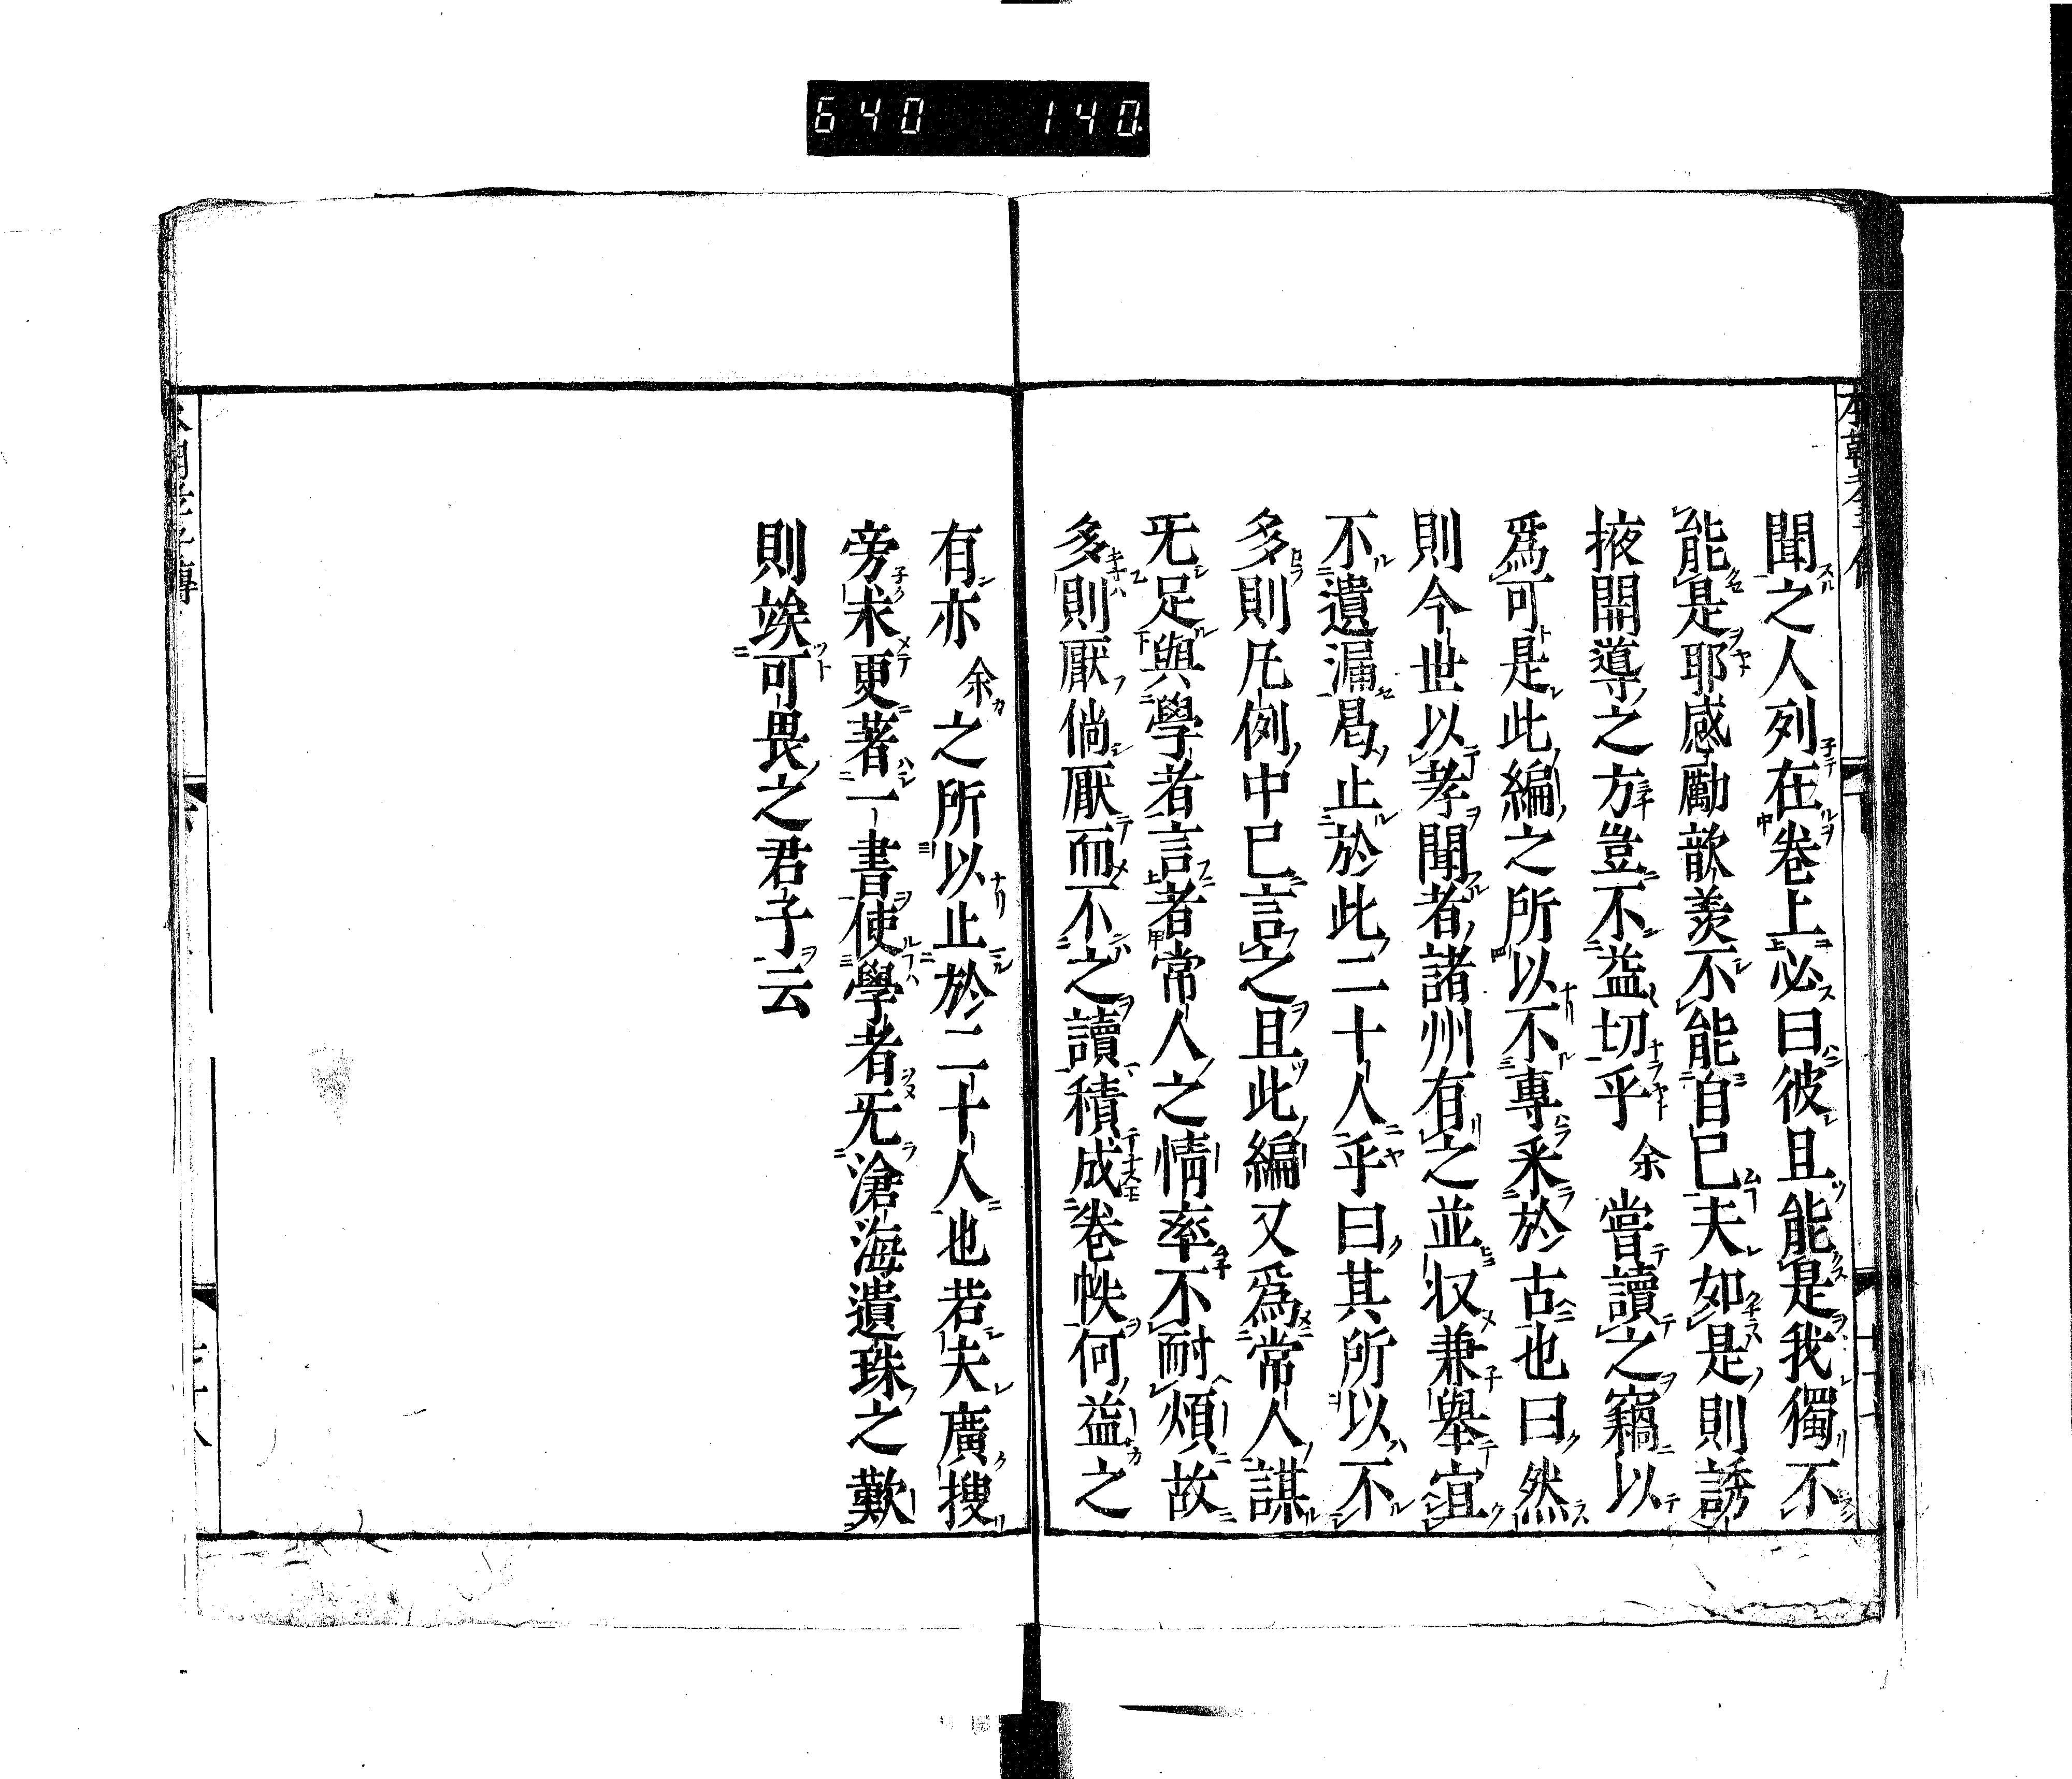 640 140
聞之人列在卷上必曰彼且能是我獨不
能是耶感勵歆羨不能自已夫如是則誘
掖開導之方豈不益切乎余嘗讀之竊以
爲可是此編之所以不專釆於古也曰然
則今世以孝聞者諸州有之並収兼舉宜
不遺漏曷止於此二十人乎曰其所以不
多則凡例中已言之且此編又爲常人謀
无足與學者言者常人之情率不耐煩故
多則厭倘厭而不之讀積成卷帙何益之
有亦余之所以止於二十人也若夫廣搜
旁求更著一書使學者无滄海遺珠之歎
則竢可畏之君子云